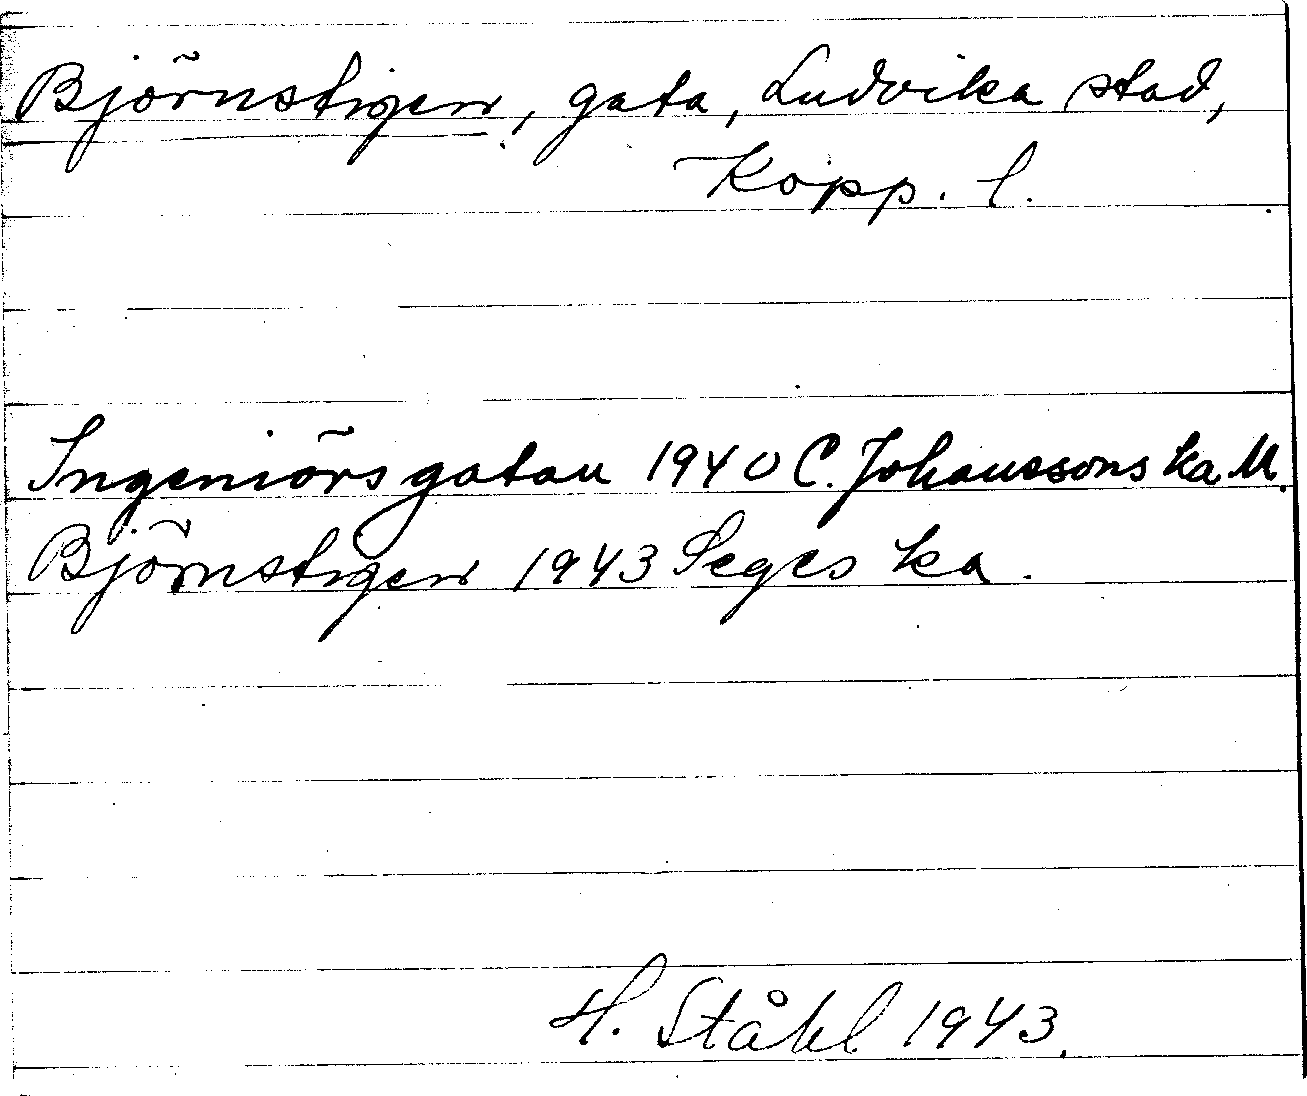 Björnstigen, gata, Ludvika stad,
Kopp. l.
Ingeniörsgatan 1940 C. Johanssons ka M.
Björnstigen 1943 Seges ka.
H. Ståhl 1943.